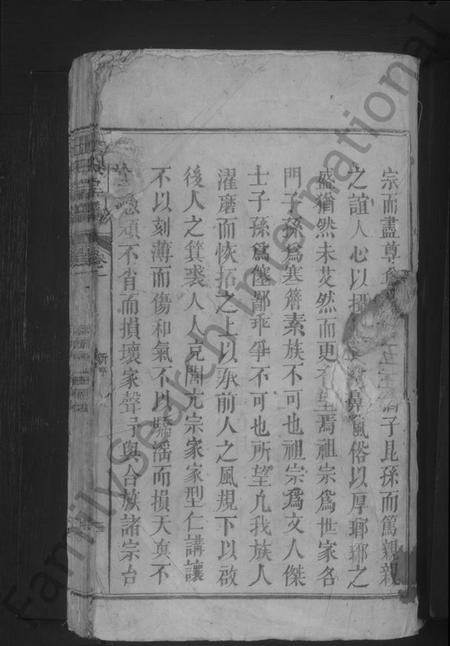 宗而盡尊子昆孫而篤親親
之誼人心以風俗以厚瑯琊之
盛猶然未艾然而更焉祖宗爲世家各
門子孫爲寒簷素族不可也祖宗爲文人傑
士子孫爲僿鄙乖爭不可也所望凡我族人
濯磨而恢拓之上以承前人之風規下以啟
後人之箕裘人人克開尤宗家家型仁講讓
不以刻薄而傷和氣不以驕滛而損天眞不
頑不肖而損壞家聲予與合族諸宗台
卷
FamilySearch International